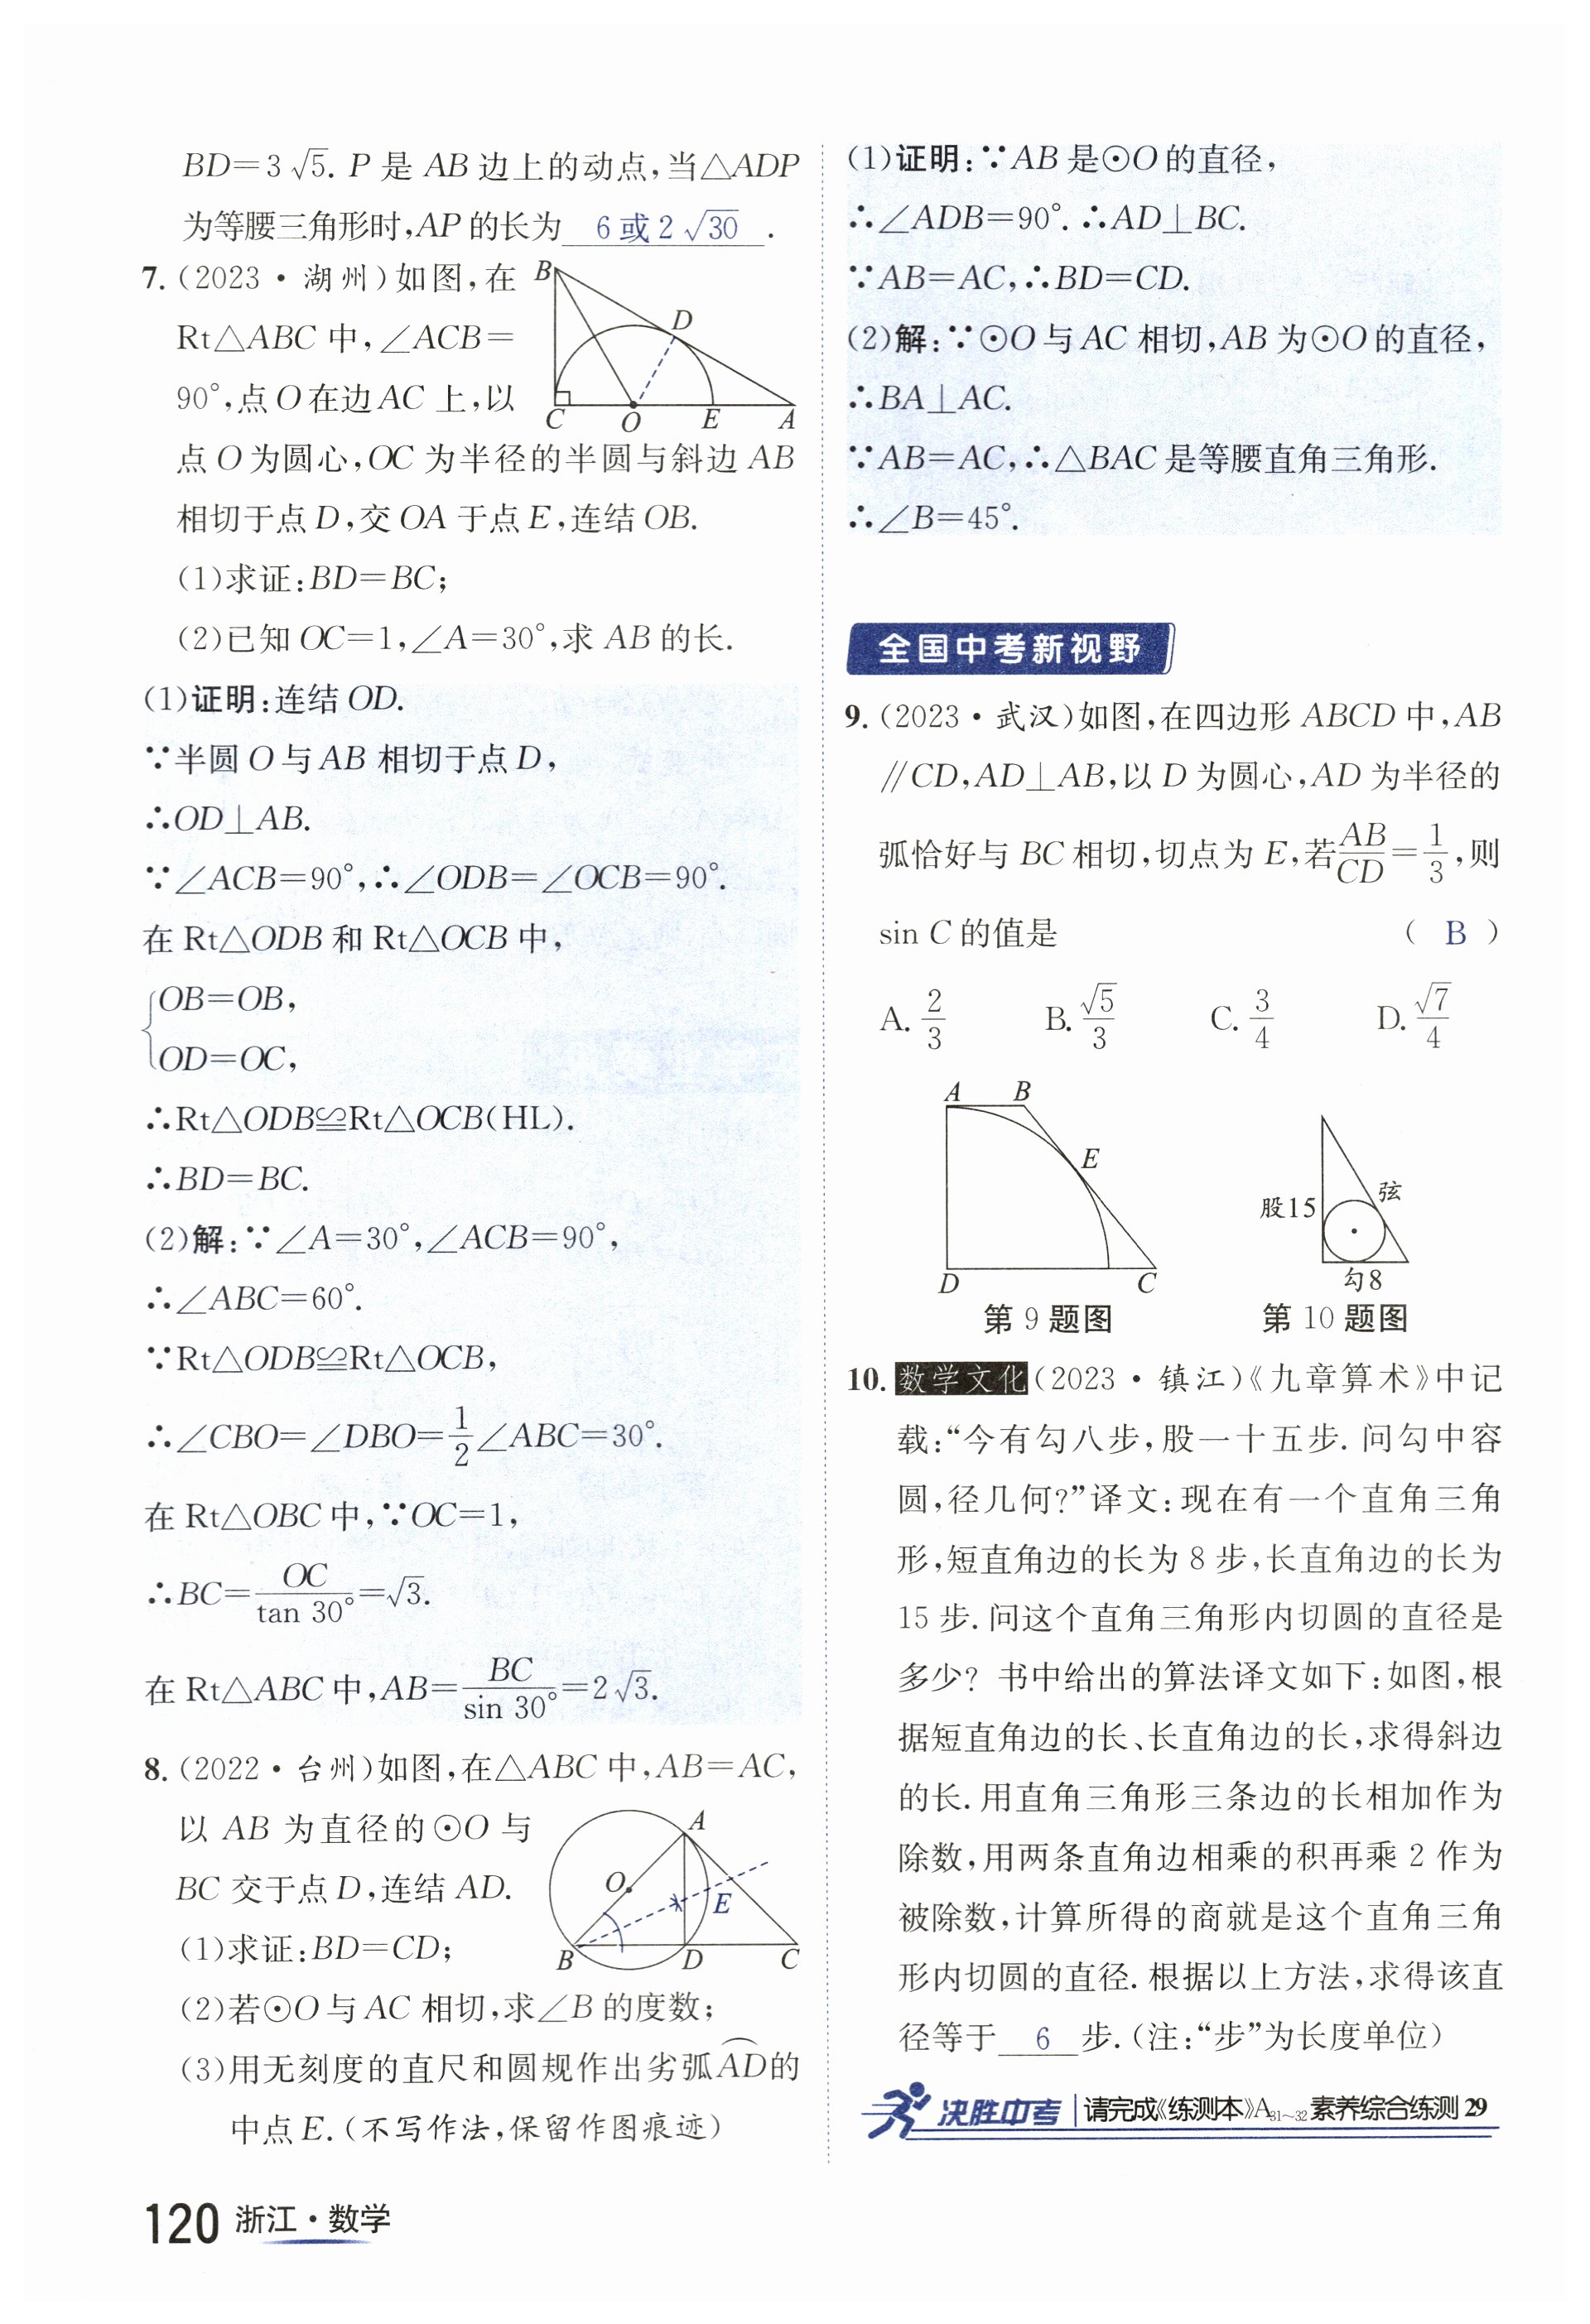 BD=3√5. P 是 AB 边上的动点,当△ADP
为等腰三角形时,AP 的长为 6或2√30 .
7. (2023·湖州)如图,在
Rt△ABC 中,∠ACB=
90°,点 O 在边 AC 上,以
点 O 为圆心,OC 为半径的半圆与斜边 AB
相切于点 D,交 OA 于点 E,连结 OB.
(1)求证:BD=BC;
(2)已知 OC=1,∠A=30°,求 AB 的长.
B
D
C
O
E
A
(1)证明:连结 OD.
∵半圆 O 与 AB 相切于点 D,
∴OD⊥AB.
∵∠ACB=90°,∴∠ODB=∠OCB=90°.
在 Rt△ODB 和 Rt△OCB 中,
{OB=OB,
OD=OC,
∴Rt△ODB≌Rt△OCB(HL).
∴BD=BC.
(2)解:∵∠A=30°,∠ACB=90°,
∴∠ABC=60°.
∵Rt△ODB≌Rt△OCB,
∴∠CBO=∠DBO=1/2∠ABC=30°.
在 Rt△OBC 中,∵OC=1,
∴BC=OC/tan 30°=√3.
在 Rt△ABC 中,AB=BC/sin 30°=2√3.
8. (2022·台州)如图,在△ABC 中,AB=AC,
以 AB 为直径的⊙O 与
BC 交于点 D,连结 AD.
(1)求证:BD=CD;
(2)若⊙O 与 AC 相切,求∠B 的度数;
(3)用无刻度的直尺和圆规作出劣弧A͡D的
中点 E.(不写作法,保留作图痕迹)
A
O
E
B
D
C
(1)证明:∵AB 是⊙O 的直径,
∴∠ADB=90°.∴AD⊥BC.
∵AB=AC,∴BD=CD.
(2)解:∵⊙O 与 AC 相切,AB 为⊙O 的直径,
∴BA⊥AC.
∵AB=AC,∴△BAC 是等腰直角三角形.
∴∠B=45°.
全国中考新视野
9. (2023·武汉)如图,在四边形 ABCD 中,AB
∥CD,AD⊥AB,以 D 为圆心,AD 为半径的
弧恰好与 BC 相切,切点为 E,若AB/CD=1/3,则
sin C 的值是 ( B )
A. 2/3 B. √5/3 C. 3/4 D. √7/4
A
B
E
D
C
第 9 题图
股15
弦
勾8
第 10 题图
10. 数学文化(2023·镇江)《九章算术》中记
载:“今有勾八步,股一十五步.问勾中容
圆,径几何?”译文:现在有一个直角三角
形,短直角边的长为 8 步,长直角边的长为
15 步.问这个直角三角形内切圆的直径是
多少? 书中给出的算法译文如下:如图,根
据短直角边的长、长直角边的长,求得斜边
的长.用直角三角形三条边的长相加作为
除数,用两条直角边相乘的积再乘 2 作为
被除数,计算所得的商就是这个直角三角
形内切圆的直径.根据以上方法,求得该直
径等于 6 步.(注:“步”为长度单位)
决胜中考 请完成《练测本》A31~32素养综合练测 29
120 浙江·数学